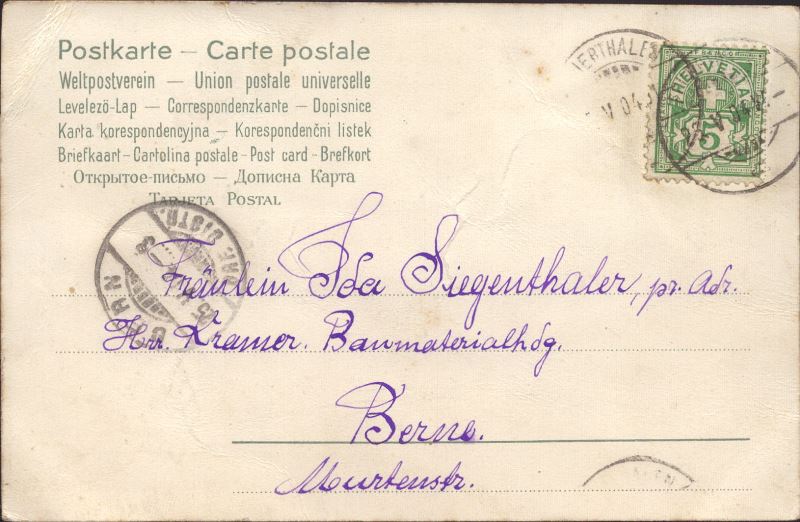 Postkarte – Carte postale
Weltpostverein — Union postale universelle
Levelező-Lap — Correspondenzkarte — Dopisnice
Karta korespondencyjna – Korespondenčni listek
Briefkaart – Cartolina postale – Post card – Brefkort
Открытое-письмо – Дописна Карта
Tarjeta Postal
HELVETIA
5
V 04
Fräulein Ida Siegenthaler, pr. Adr.
Hrr. Kramer. Baumaterialhdg.
Berne.
Murtenstr.